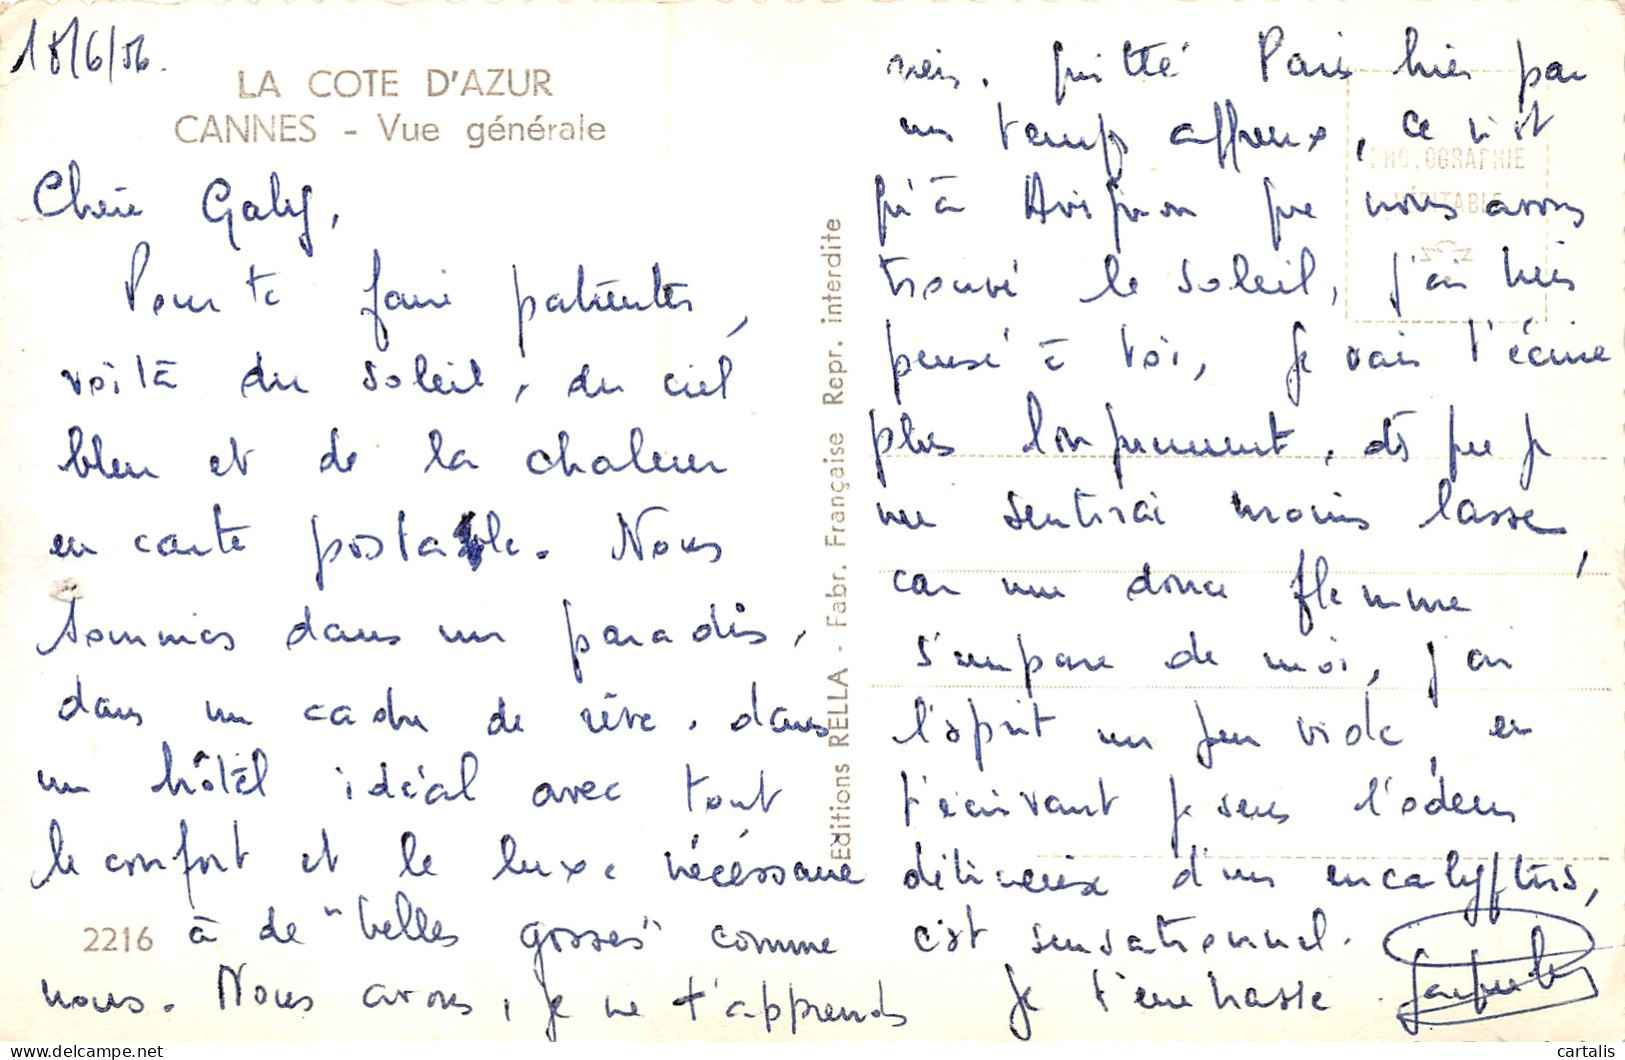 18/6/56.
LA COTE D'AZUR
CANNES - Vue générale
Chérie Gaby,
Pour te faire patienter,
voilà du soleil, du ciel
bleu et de la chaleur
en carte postale. Nous
sommes dans un paradis,
dans un cadre de rêve, dans
un hôtel idéal avec tout
le confort et le luxe nécéssaire
à de "belles gosses" comme
nous. Nous avons, je ne t'apprends
2216
rien, quitté Paris hier par
un temps affreux, ce n'est
qu'à Avignon que nous avons
trouvé le soleil, j'ai hier
pensé à toi, je vais t'écrire
plus longuement, dès que je
me sentirai moins lasse,
car une douce flemme
s'empare de moi, j'ai
l'esprit un peu vide, en
t'écrivant je sens l'odeur
délicieuse d'un eucalyptus,
c'est sensationnel.
Je t'embrasse.
PHOTOGRAPHIE
VÉRITABLE
Editions RELLA - Fabr. Française Repr. interdite
cartalis